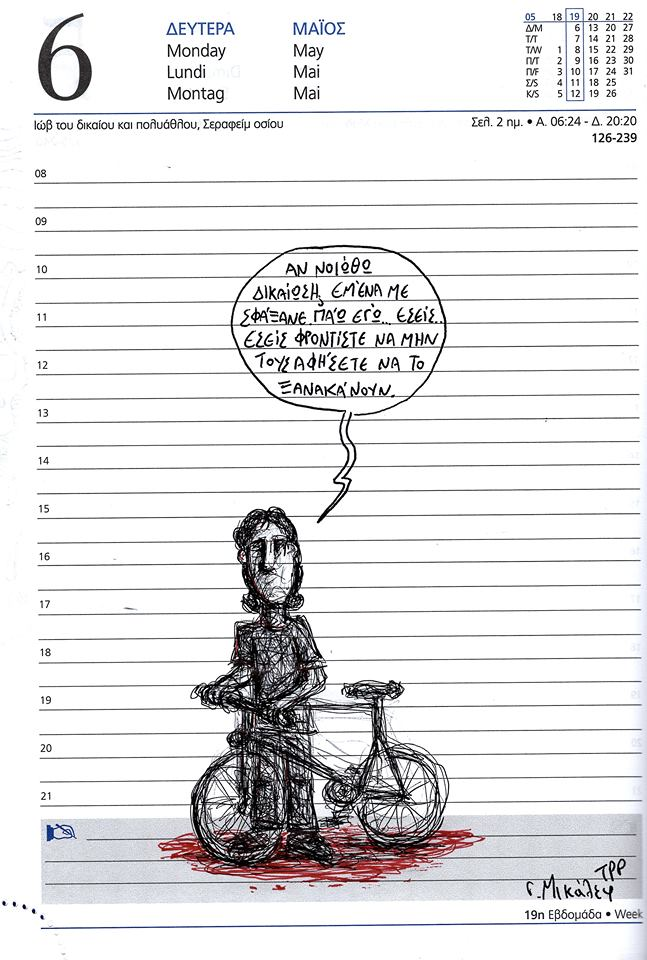 6
ΔΕΥΤΕΡΑ ΜΑΪΟΣ
Monday May
Lundi Mai
Montag Mai
05 18 19 20 21 22
Δ/M 6 13 20 27
T/T 7 14 21 28
T/W 1 8 15 22 29
Π/T 2 9 16 23 30
Π/F 3 10 17 24 31
Σ/S 4 11 18 25
K/S 5 12 19 26
Ιώβ του δικαίου και πολυάθλου, Σεραφείμ οσίου
Σελ. 2 ημ. • Α. 06:24 - Δ. 20:20
126-239
08
09
10
11
12
13
14
15
16
17
18
19
20
21
ΑΝ ΝΟΙΩΘΩ
ΔΙΚΑΙΩΣΗ; ΕΜΈΝΑ ΜΕ
ΣΦΆΞΑΝΕ. ΠΆΩ ΕΓΏ... ΕΣΕΊΣ..
ΕΣΕΊΣ ΦΡΟΝΤΙΣΤΕ ΝΑ ΜΗΝ
ΤΟΥΣ ΑΦΉΣΕΤΕ ΝΑ ΤΟ
ΞΑΝΑΚΆΝΟΥΝ.
ΤΡΡ
Γ. Μικάλεφ
19η Εβδομάδα • Week